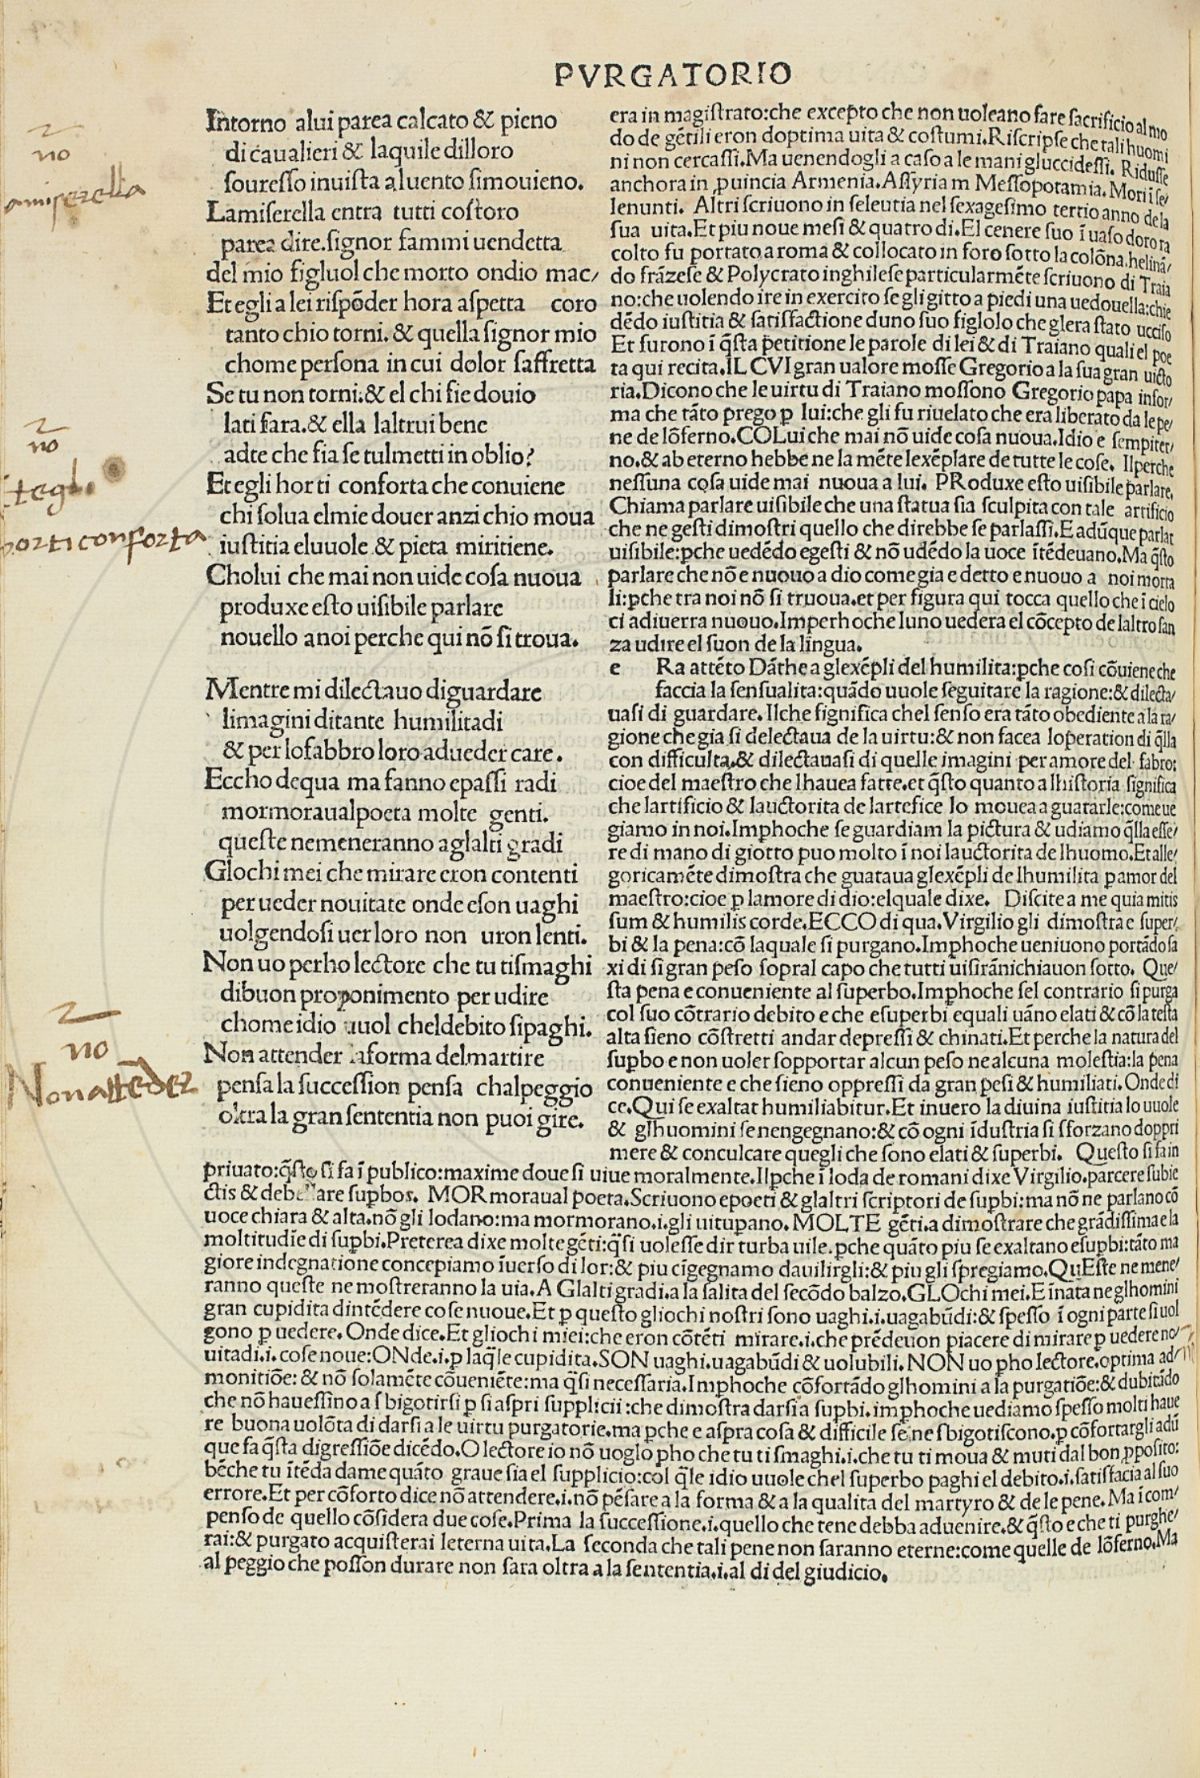 PVRGATORIO
Intorno alui parea calcato & pieno
di cavalieri & laquile dilloro
souresso inuista aluento simouieno.
Lamiserella entra tutti costoro
parea dire.signor fammi uendetta
del mio figluol che morto ondio mac/
Et egli a lei rispõder hora aspetta coro
tanto chio torni. & quella signor mio
chome persona in cui dolor saffretta
Se tu non torni:& el chi fie douio
lati fara.& ella laltrui bene
adte che fia se tulmetti in oblio?
Et egli hor ti conforta che conuiene
chi solua elmie douer anzi chio moua
iustitia eluuole & pieta miritiene.
Cholui che mai non uide cosa nuoua
produxe esto uisibile parlare
nouello a noi perche qui nõ si troua.
Mentre mi dilectauo diguardare
limagini ditante humilitadi
& per lofabbro loro adueder care.
Eccho dequa ma fanno epassi radi
mormoraualpoeta molte genti.
queste nemeneranno aglalti gradi
Glochi mei che mirare eron contenti
per ueder nouitate onde eson uaghi
uolgendosi uer loro non uron lenti.
Non uo perho lectore che tu tismaghi
dibuon proponimento per udire
chome idio uuol cheldebito sipaghi.
Non attender laforma delmartire
pensa la succession pensa chalpeggio
oltra la gran sententia non puoi gire.
era in magistrato:che excepto che non uoleano fare sacrificio al mo
do de gẽtili eron doptima uita & costumi.Riscripse che tali huomi
ni non cercassi.Ma uenendogli a caso a le mani gluccidessi. Ridusse
anchora in ꝓuincia Armenia.Assyria m Messopotamia. Mori ĩ se/
lenunti. Altri scriuono in seleutia nel sexagesimo tertio anno de la
sua uita.Et piu noue mesi & quatro di.El cenere suo ĩ uaso doro ra
colto fu portato a roma & collocato in foro sotto la colõna.helinã/
do frãzese & Polycrato inghilese particularmẽte scriuono di Traia
no:che uolendo ire in exercito se gli gitto a piedi una uedouella:chie
dẽdo iustitia & satisfactione duno suo figlolo che glera stato ucciso
Et furono ĩ q̃sta petitione le parole di lei & di Traiano quali el poe
ta qui recita.IL CVI gran ualore mosse Gregorio a la sua gran uicto
ria.Dicono che le uirtu di Traiano mossono Gregorio papa infor/
ma che tãto prego ꝑ lui:che gli fu riuelato che era liberato da le pe/
ne de lõferno.COLui che mai nõ uide cosa nuoua.Idio e sempiter/
no.& ab eterno hebbe ne la mẽte lexẽplare de tutte le cose. Ilperche
nessuna cosa uide mai nuoua a lui. PRoduxe esto uisibile parlare.
Chiama parlare uisibile che una statua sia sculpita con tale artificio
che ne gesti dimostri quello che direbbe se parlassi.E adũque parlar
uisibile:ꝑche uedẽdo egesti & nõ udẽdo la uoce ĩtẽdeuano.Ma q̃sto
parlare che nõ e nuouo a dio come gia e detto e nuouo a noi morta
li:ꝑche tra noi nõ si truoua.et per figura qui tocca quello che ĩ cielo
ci adiuerra nuouo.Imperhoche luno uedera el cõcepto de laltro san
za udire el suon de la lingua.
e Ra attẽto Dãthe a glexẽpli del humilita:ꝑche cosi cõuiene che
faccia la sensualita:quãdo uuole seguitare la ragione:& dilecta/
uasi di guardare. Ilche significa chel senso era tãto obediente a la ra/
gione che gia si delectaua de la uirtu:& non facea loperation di q̃lla
con difficulta.& dilectauasi di quelle imagini per amore del fabro:
cioe del maestro che lhauea fatte.et q̃sto quanto a lhistoria significa
che lartificio & lauctorita de lartefice lo mouea a guatarle:come ue
giamo in noi.Imꝑhoche se guardiam la pictura & udiamo q̃lla esse/
re di mano di giotto puo molto ĩ noi lauctorita de lhuomo.Et alle/
goricamẽte dimostra che guataua glexẽpli de lhumilita ꝑ amor del
maestro:cioe ꝑ lamore di dio:elquale dixe. Discite a me quia mitis
sum & humilis corde.ECCO di qua.Virgilio gli dimostra e super/
bi & la pena:cõ laquale si purgano.Imꝑhoche ueniuono portãdo sa
xi di si gran peso sopral capo che tutti uisirãnichiauon sotto. Que/
sta pena e conueniente al superbo.Imꝑhoche sel contrario si purga
col suo cõtrario debito e che esuperbi equali uãno elati & cõ la testa
alta sieno cõstretti andar depressi & chinati.Et perche la natura del
suꝑbo e non uoler sopportar alcun peso ne alcuna molestia:la pena
conueniente e che sieno oppressi da gran pesi & humiliati.Onde di
ce.Qui se exaltat humiliabitur.Et inuero la diuina iustitia lo uuole
& glhuomini se nengegnano:& cõ ogni ĩdustria si sforzano doppri
mere & conculcare quegli che sono elati & superbi. Questo si fa in
priuato:q̃sto si fa ĩ publico:maxime doue si uiue moralmente.Ilꝑche ĩ loda de romani dixe Virgilio.parcere subie
ctis & debellare suꝑbos. MORmoraual poeta.Scriuono epoeti & glaltri scriptori de suꝑbi:ma nõ ne parlano cõ
uoce chiara & alta.nõ gli lodano:ma mormorano.i.gli uituꝑano. MOLTE gẽti.a dimostrare che grãdissima e la
moltitudine di suꝑbi.Preterea dixe molte gẽti:q̃si uolesse dir turba uile.ꝑche quãto piu se exaltano esuꝑbi:tãto ma
giore indegnatione concepiamo ĩuerso di lor:& piu cĩgegnamo dauilirgli:& piu gli spregiamo.QuEste ne mene/
ranno queste ne mostreranno la uia.A Glalti gradi.a la salita del secõdo balzo.GLOchi mei.E inata ne glhomini
gran cupidita dintẽdere cose nuoue.Et ꝑ questo gliochi nostri sono uaghi.i.uagabũdi:& spesso ĩ ogni parte si uol
gono ꝑ uedere.Onde dice.Et gliochi miei:che eron cõtẽti mirare.i.che prẽdeuon piacere di mirare ꝑ uedere no/
uitadi.i.cose noue:ONde.i.ꝑ laq̃le cupidita.SON uaghi.uagabũdi & uolubili.NON uo ꝑho lectore.optima ad/
monitiõe:& nõ solamẽte cõueniẽte:ma q̃si necessaria.Imꝑhoche cõfortãdo glhomini a la purgatiõe:& dubitãdo
che nõ hauessino a sbigotirsi ꝑ si aspri supplicii:che dimostra darsi a suꝑbi.imꝑhoche uediamo spesso molti haue
re buona uolõta di darsi a le uirtu purgatorie.ma ꝑche e aspra cosa & difficile se ne sbigotiscono.ꝑ cõfortargli adũ
que fa q̃sta digressiõe dicẽdo.O lectore io nõ uoglo ꝑho che tu ti smaghi.i.che tu ti moua & muti dal bon ꝓposito:
bẽche tu ĩtẽda dame quãto graue sia el supplicio:col q̃le idio uuole chel superbo paghi el debito.i.satisfacia al suo
errore.Et per cõforto dice nõ attendere.i.nõ pẽsare a la forma & a la qualita del martyro & de le pene.Ma ĩ com/
penso de quello cõsidera due cose.Prima la successione.i.quello che tene debba aduenire.& q̃sto e che ti purghe/
rai:& purgato acquisterai leterna uita.La seconda che tali pene non saranno eterne:come quelle de lõferno.Ma
al peggio che posson durare non sara oltra a la sententia.i.al di del giudicio.
no
amiserella
no
tegl.
horti conforta
no
Non attẽder